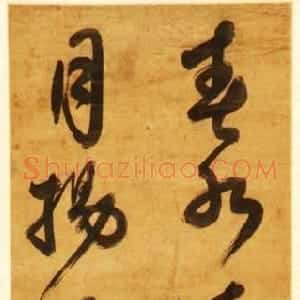 春水
月揚
Shufaziliao.COM